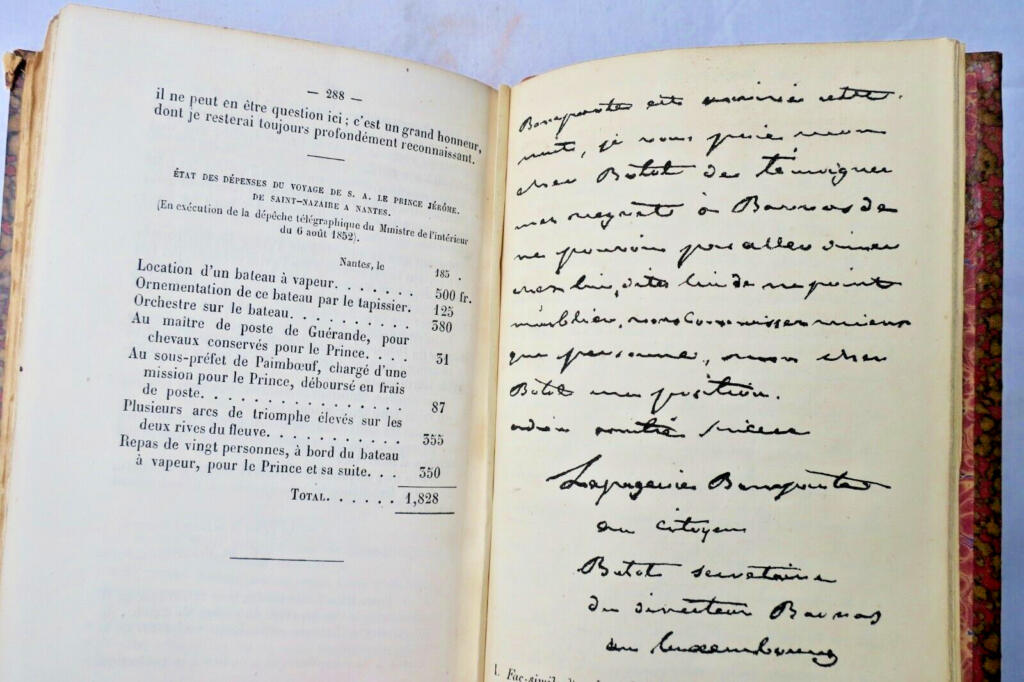 — 288 —
il ne peut en être question ici ; c'est un grand honneur,
dont je resterai toujours profondément reconnaissant.
ÉTAT DES DÉPENSES DU VOYAGE DE S. A. LE PRINCE JÉRÔME.
DE SAINT-NAZAIRE A NANTES.
(En exécution de la dépêche télégraphique du Ministre de l'intérieur
du 6 août 1852).
Nantes, le 185 .
Location d'un bateau à vapeur. . . . . . . . 500 fr.
Ornementation de ce bateau par le tapissier. 125
Orchestre sur le bateau. . . . . . . . . . . 380
Au maître de poste de Guérande, pour
chevaux conservés pour le Prince. . . . 31
Au sous-préfet de Paimbœuf, chargé d'une
mission pour le Prince, déboursé en frais
de poste. . . . . . . . . . . . . . . . . 87
Plusieurs arcs de triomphe élevés sur les
deux rives du fleuve. . . . . . . . . . . 355
Repas de vingt personnes, à bord du bateau
à vapeur, pour le Prince et sa suite. . . 350
TOTAL. . . . . . 1,828
Bonaparte est arrivé cette
nuit, je vous prie mon
cher Botot de témoigner
mes regrets à Barras de
ne pouvoir pas aller diner
ches lui, dites lui de ne point
m'oublier, vous connoisser mieux
que personne, mon cher
Botot ma position.
adieu amitié sincere
Lapagerie Bonaparte
au citoyen
Botot secretaire
du directeur Barras
au luxembourg
1. Fac-simile